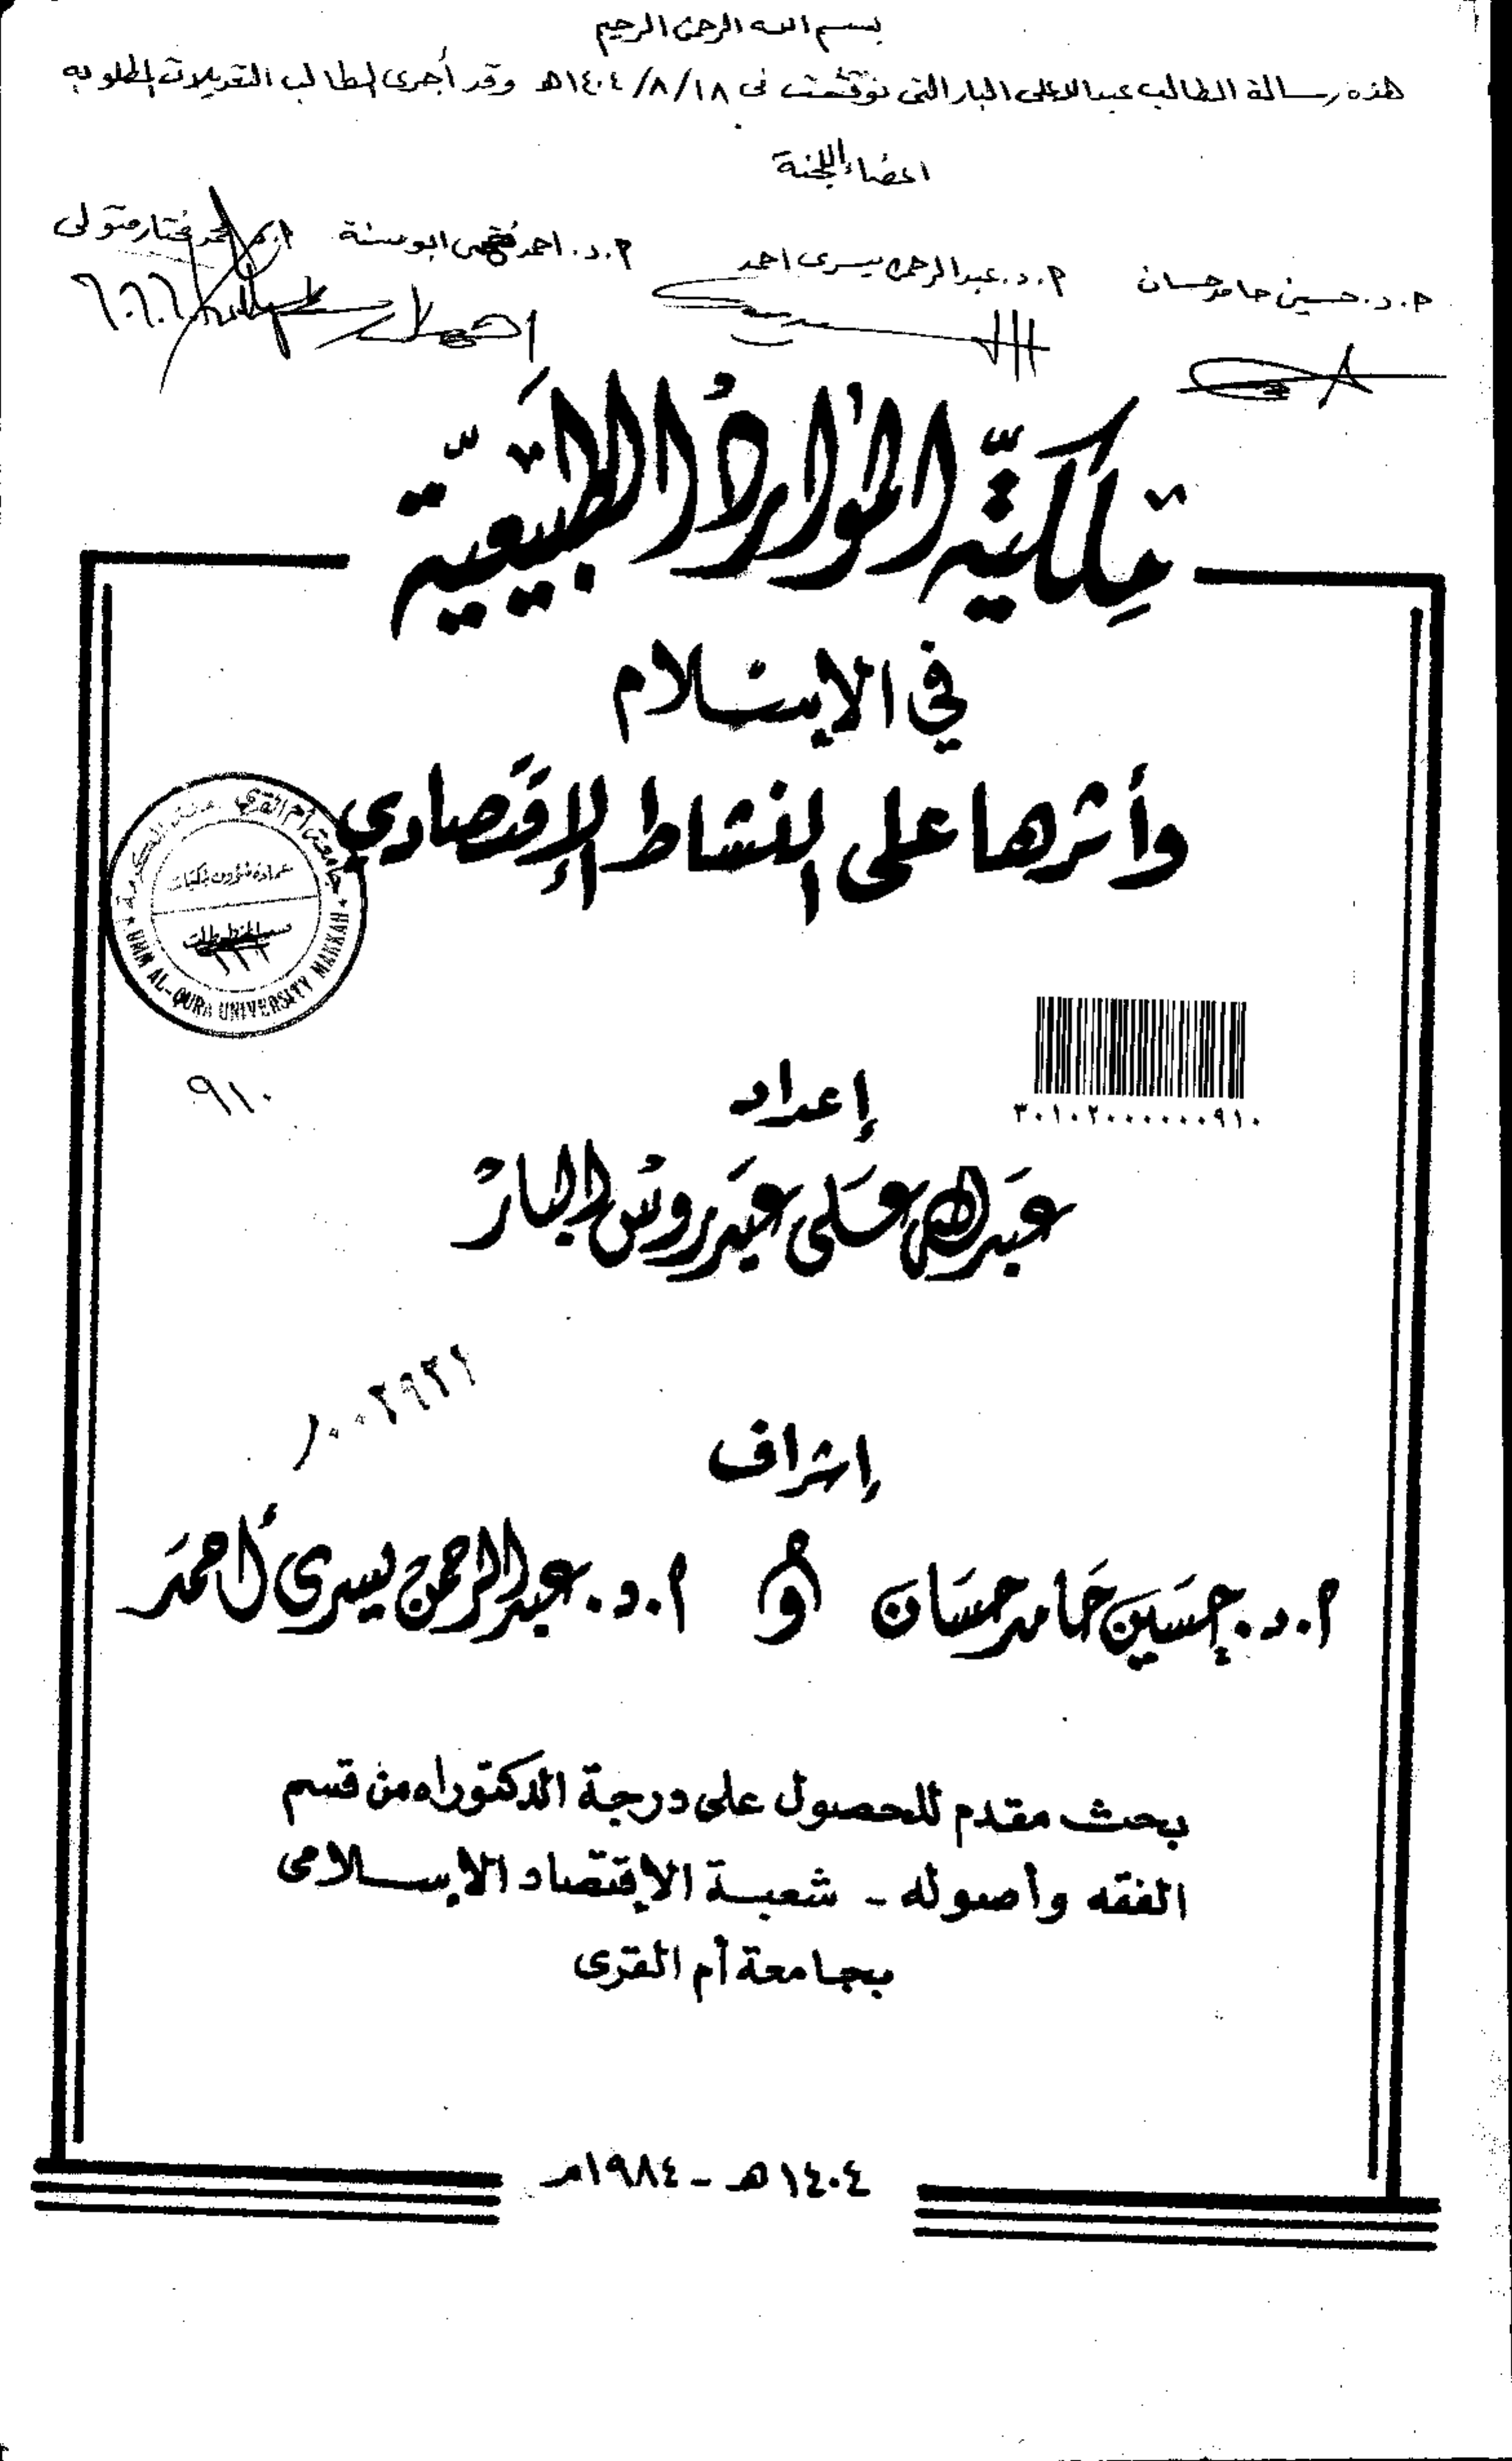 بسم الله الرحمن الرحيم
هذه رسالة الطالب عبدالله علي البار التي نوقشت في ١٤٠٤/٨/١٨هـ وقد أجرى الطالب التعديلات المطلوبه
اعضاء اللجنة
أ.د. حسين حامد حسان أ.د. عبدالرحمن يسرى احمد أ.د. احمد فهمى ابوسنة أ.د. محمد مختار متولى
ملكيّة الموارد الطبيعيّة
في الإسلام
وأثرها على النشاط الإقتصادي
جامعة أم القرى مكة المكرمة
عمادة شؤون المكتبات
قسم المخطوطات
UMM AL-QURA UNIVERSITY MAKKAH
٩١٠
٣٠١٠٢٠٠٠٠٠٠٩١٠
إعداد
عبدالله علي عيدروس البار
إشراف
أ.د. حسين حامد حسان و أ.د. عبدالرحمن يسرى أحمد
بحث مقدم للحصول على درجة الدكتوراه من قسم
الفقه وأصوله - شعبة الإقتصاد الإسلامى
بجامعة أم القرى
١٤٠٤هـ - ١٩٨٤م